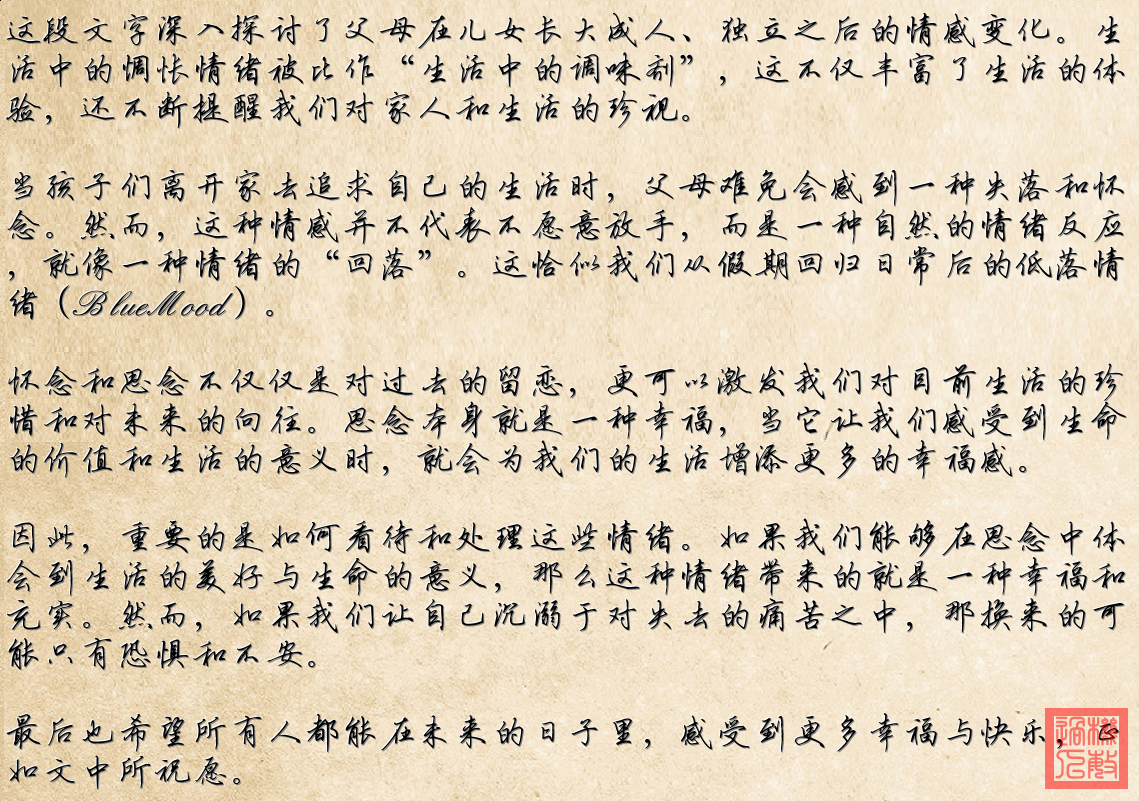 这段文字深入探讨了父母在儿女长大成人、独立之后的情感变化。生
活中的惆怅情绪被比作“生活中的调味剂”，这不仅丰富了生活的体
验，还不断提醒我们对家人和生活的珍视。
当孩子们离开家去追求自己的生活时，父母难免会感到一种失落和怀
念。然而，这种情感并不代表不愿意放手，而是一种自然的情绪反应
，就像一种情绪的“回落”。这恰似我们从假期回归日常后的低落情
绪（BlueMood）。
怀念和思念不仅仅是对过去的留恋，更可以激发我们对目前生活的珍
惜和对未来的向往。思念本身就是一种幸福，当它让我们感受到生命
的价值和生活的意义时，就会为我们的生活增添更多的幸福感。
因此，重要的是如何看待和处理这些情绪。如果我们能够在思念中体
会到生活的美好与生命的意义，那么这种情绪带来的就是一种幸福和
充实。然而，如果我们让自己沉溺于对失去的痛苦之中，那换来的可
能只有恐惧和不安。
最后也希望所有人都能在未来的日子里，感受到更多幸福与快乐，正
如文中所祝愿。